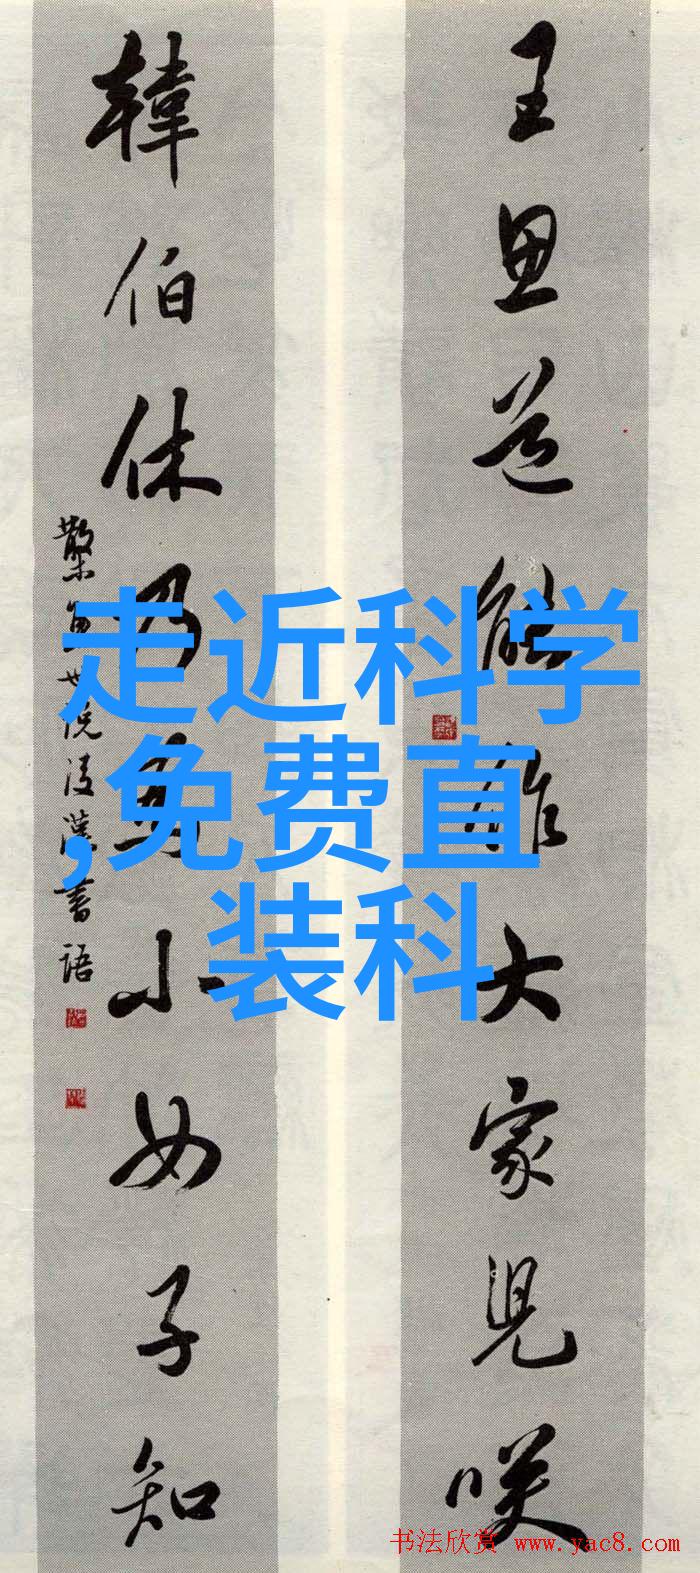 王思道能作大家兒咲
韓伯休乃為小女子知
世説後漢書語
走近科学
,免费直
装科
书法欣赏 www.yac8.com